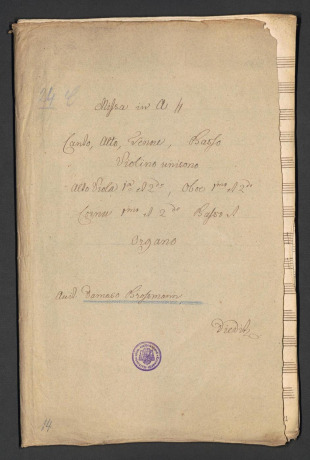 Messa in A #
Canto, Alto, Tenore, Basso
Violino unisono
Alto Viola 1mo et 2do, Oboe 1mo et 2do
Cornu 1mo et 2do Basso et
Organo
Damaso Brosmann
14